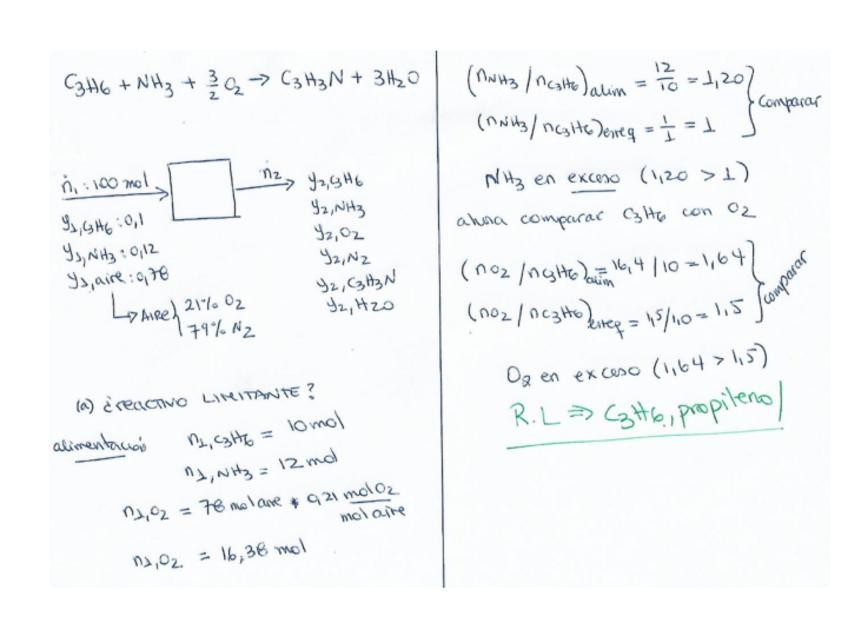 C3H6 + NH3 + 3/2 O2 → C3H3N + 3H2O
ṅ1 : 100 mol
y1,C3H6 : 0,1
y1,NH3 : 0,12
y1,aire : 0,78
↳ AIRE } 21% O2
79% N2
ṅ2
y2,C3H6
y2,NH3
y2,O2
y2,N2
y2,C3H3N
y2,H2O
(a) ¿REACTIVO LIMITANTE?
alimentació
n1,C3H6 = 10 mol
n1,NH3 = 12 mol
n1,O2 = 78 mol aire * 0,21 mol O2 / mol aire
n1,O2 = 16,38 mol
(nNH3 / nC3H6)alim = 12/10 = 1,20
(nNH3 / nC3H6)esteq = 1/1 = 1
} comparar
NH3 en exceso (1,20 > 1)
ahora comparar C3H6 con O2
(nO2 / nC3H6)alim = 16,4 / 10 = 1,64
(nO2 / nC3H6)esteq = 1,5 / 1,0 = 1,5
} comparar
O2 en exceso (1,64 > 1,5)
R.L ⇒ C3H6, propileno